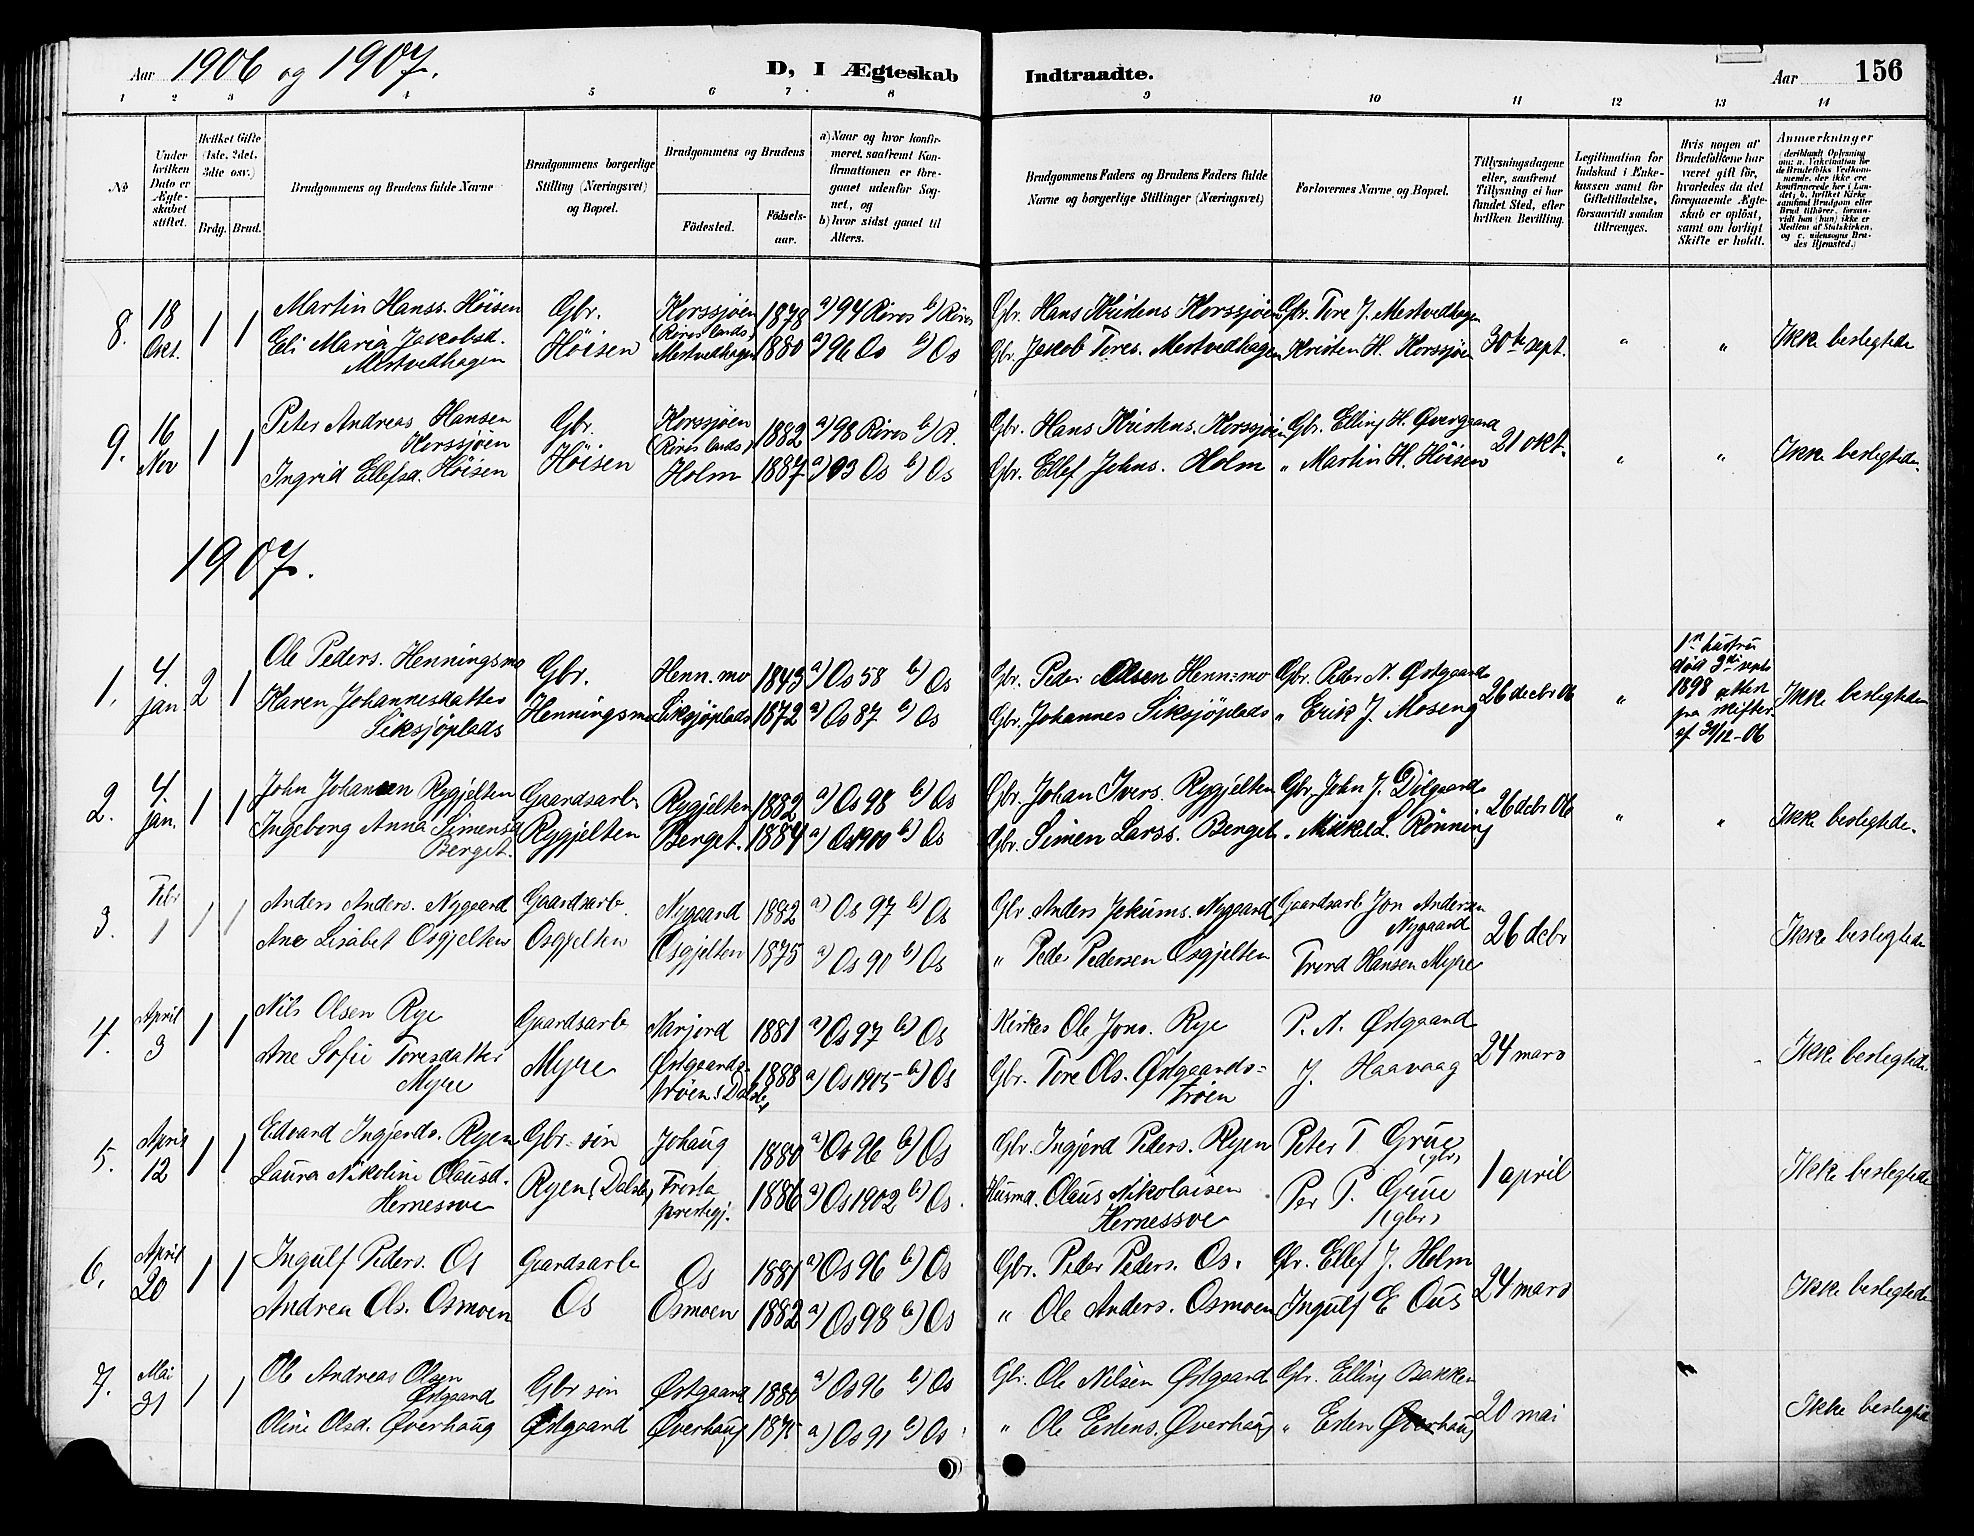 Aar 1906 og 1907.
D, I Ægteskab Indtraadte.
Aar 156
1 2 3 4 5 6 7 8 9 10 11 12 13 14
No
Under hvilken Dato er Ægteskabet stiftet.
Hvilket Gifte (1ste, 2det, 3die osv.)
Brdg. Brud.
Brudgommens og Brudens fulde Navne
Brudgommens borgerlige Stilling (Næringsvei) og Bopæl.
Brudgommens og Brudens
Fødested.
Fødselsaar.
a) Naar og hvor konfirmeret, saafremt Konfirmationen er foregaaet udenfor Sognet, og
b) hvor sidst gaaet til Alters.
Brudgommens Faders og Brudens Faders fulde Navne og borgerlige Stillinger (Næringsvei)
Forlovernes Navne og Bopæl.
Tillysningsdagene eller, saafremt Tillysning ei har fundet Sted, efter hvilken Bevilling.
Legitimation for Indskud i Enkekassen samt for Giftetilladelse, forsaavidt saadan tiltrænges.
Hvis nogen af Brudefolkene har været gift før, hvorledes da det foregaaende Ægteskab er opløst, samt om lovligt Skifte er holdt.
Anmærkninger
(deriblandt Oplysning om: a. Vakcination for de Brudefolks Vedkommende, der ikke ere konfirmerede her i Landet; b. hvilket Kirkesamfund Brudgom eller Brud tilhører, forsaavidt han (hun) ikke er Medlem af Statskirken, og c. udensogns Brudes Hjemsted.)
8. 18 Okt. 1 1 Martin Hanss. Höisen Gbr. Korssjöen (Röros lands) 1878 a) 94 Röros b) Röros Gbr. Hans Kristens Korssjöen Gbr. Tore J. Mestvedhagen 30te sept. " " Ikke beslegtede
Eli Maria Jakobsd. Mestvedhagen Höisen Mestvedhagen 1880 a) 96 Os b) Os Gbr. Jakob Tores. Mestvedhagen Kristen H. Korssjöen
9. 16 Nov 1 1 Peter Andreas Hansen Korssjöen Gbr. Korssjöen (Röros lands) 1882 a) 98 Röros b) R. Gbr. Hans Kristens. Korssjöen Gbr. Elling H. Øvergaard 21 okt. " " Ikke beslegtede
Ingrid Ellefsd. Höisen Höisen Holm 1887 a) 03 Os b) Os Gbr. Ellef Johns. Holm " Martin H. Höisen
1907.
1. 4 jan 2 1 Ole Peders. Henningsmo Gbr. Henn. mo 1843 a) Os 58 b) Os Gbr. Peder Olsen Henn=mo Gbr. Peder N. Østgaard 26 decbr 06 " 1n hustru död 3di septr 1898 atten fra skifter. af 31/12-06 Ikke beslegtede
Karen Johannesdatter Siksjöplads Henningsmo Siksjöplads 1872 a) Os 87 b) Os Gbr. Johannes Siksjöplads " Erik J. Moseng
2. 4 jan. 1 1 John Johansen Rygjelten Gaardsarb Rygjelten 1882 a) Os 98 b) Os Gbr. Johan Ivers. Rygjelten Gbr. John J. Dölgaard 26 debr 06 " " Ikke beslegtede.
Ingeborg Anna Simensd Berget. Rygjelten Berget. 1884 a) Os 1900 b) Os Gbr. Simen Larss. Berget " Mikkel L. Rönning
3. Febr 1 1 1 Anders Anders. Nygaard Gaardsarb. Nygaard 1882 a) Os 97 b) Os Gbr. Anders Jokums. Nygaard Gaardsarb Jon Andersen Nygaard 26 debr Ikke beslegtede
Ane Lisabet Osgjelten Osgjelten Osgjelten 1875 a) Os 90 b) Os " Peder Pedersen Osgjelten Trond Hansen Myre
4. April 3 1 1 Nils Olsen Rye Gaardsarb Narjord 1881 a) Os 97 b) Os Kirkes. Ole Jons. Rye P. N. Østgaard 24 mars Ikke beslegtede
Ane Sofie Toresdatter Myre Myre Østgaardströen i Dalsb. 1888 a) Os 1905 b) Os Gbr. Tore Ols. Østgaards=tröen J. Haavaag
5. April 12 1 1 Edvard Ingjerds. Ryen Gbr. sön Johaug 1880 a) Os 96 b) Os Gbr. Ingjerd Peders. Ryen Peter T Grue (gbr) 1 april Ikke beslegtede
Laura Nikoline Olausd. Hernessve Ryen i Dalsb Frosta prestegj. 1886 a) Os 1902 b) Os. Husmd. Olaus Nikolaisen Hernessve Per P. Grue (gbr)
6. April 20 1 1 Ingulf Peders. Os Gaardsarb Os 1881 a) Os 96 b) Os Gbr. Peder Peders. Os. Gbr. Ellef J. Holm 24 mars Ikke beslegtede
Andrea Ols. Osmoen Os Osmoen 1882 a) Os 98 b) Os " Ole Anders. Osmoen Ingulf E Ous
7. Mai 31 1 1 Ole Andreas Olsen Østgaard Gbr sön Østgaard 1880 a) Os 96 b) Os Gbr. Ole Nilsen Østgaard Gbr. Elling Bakken 20 mai Ikke beslegtede
Oline Olsd. Øverhaug Østgaard Øverhaug 1875 a) Os 91 b) Os " Ole Estens. Øverhaug " Esten Øverhaug